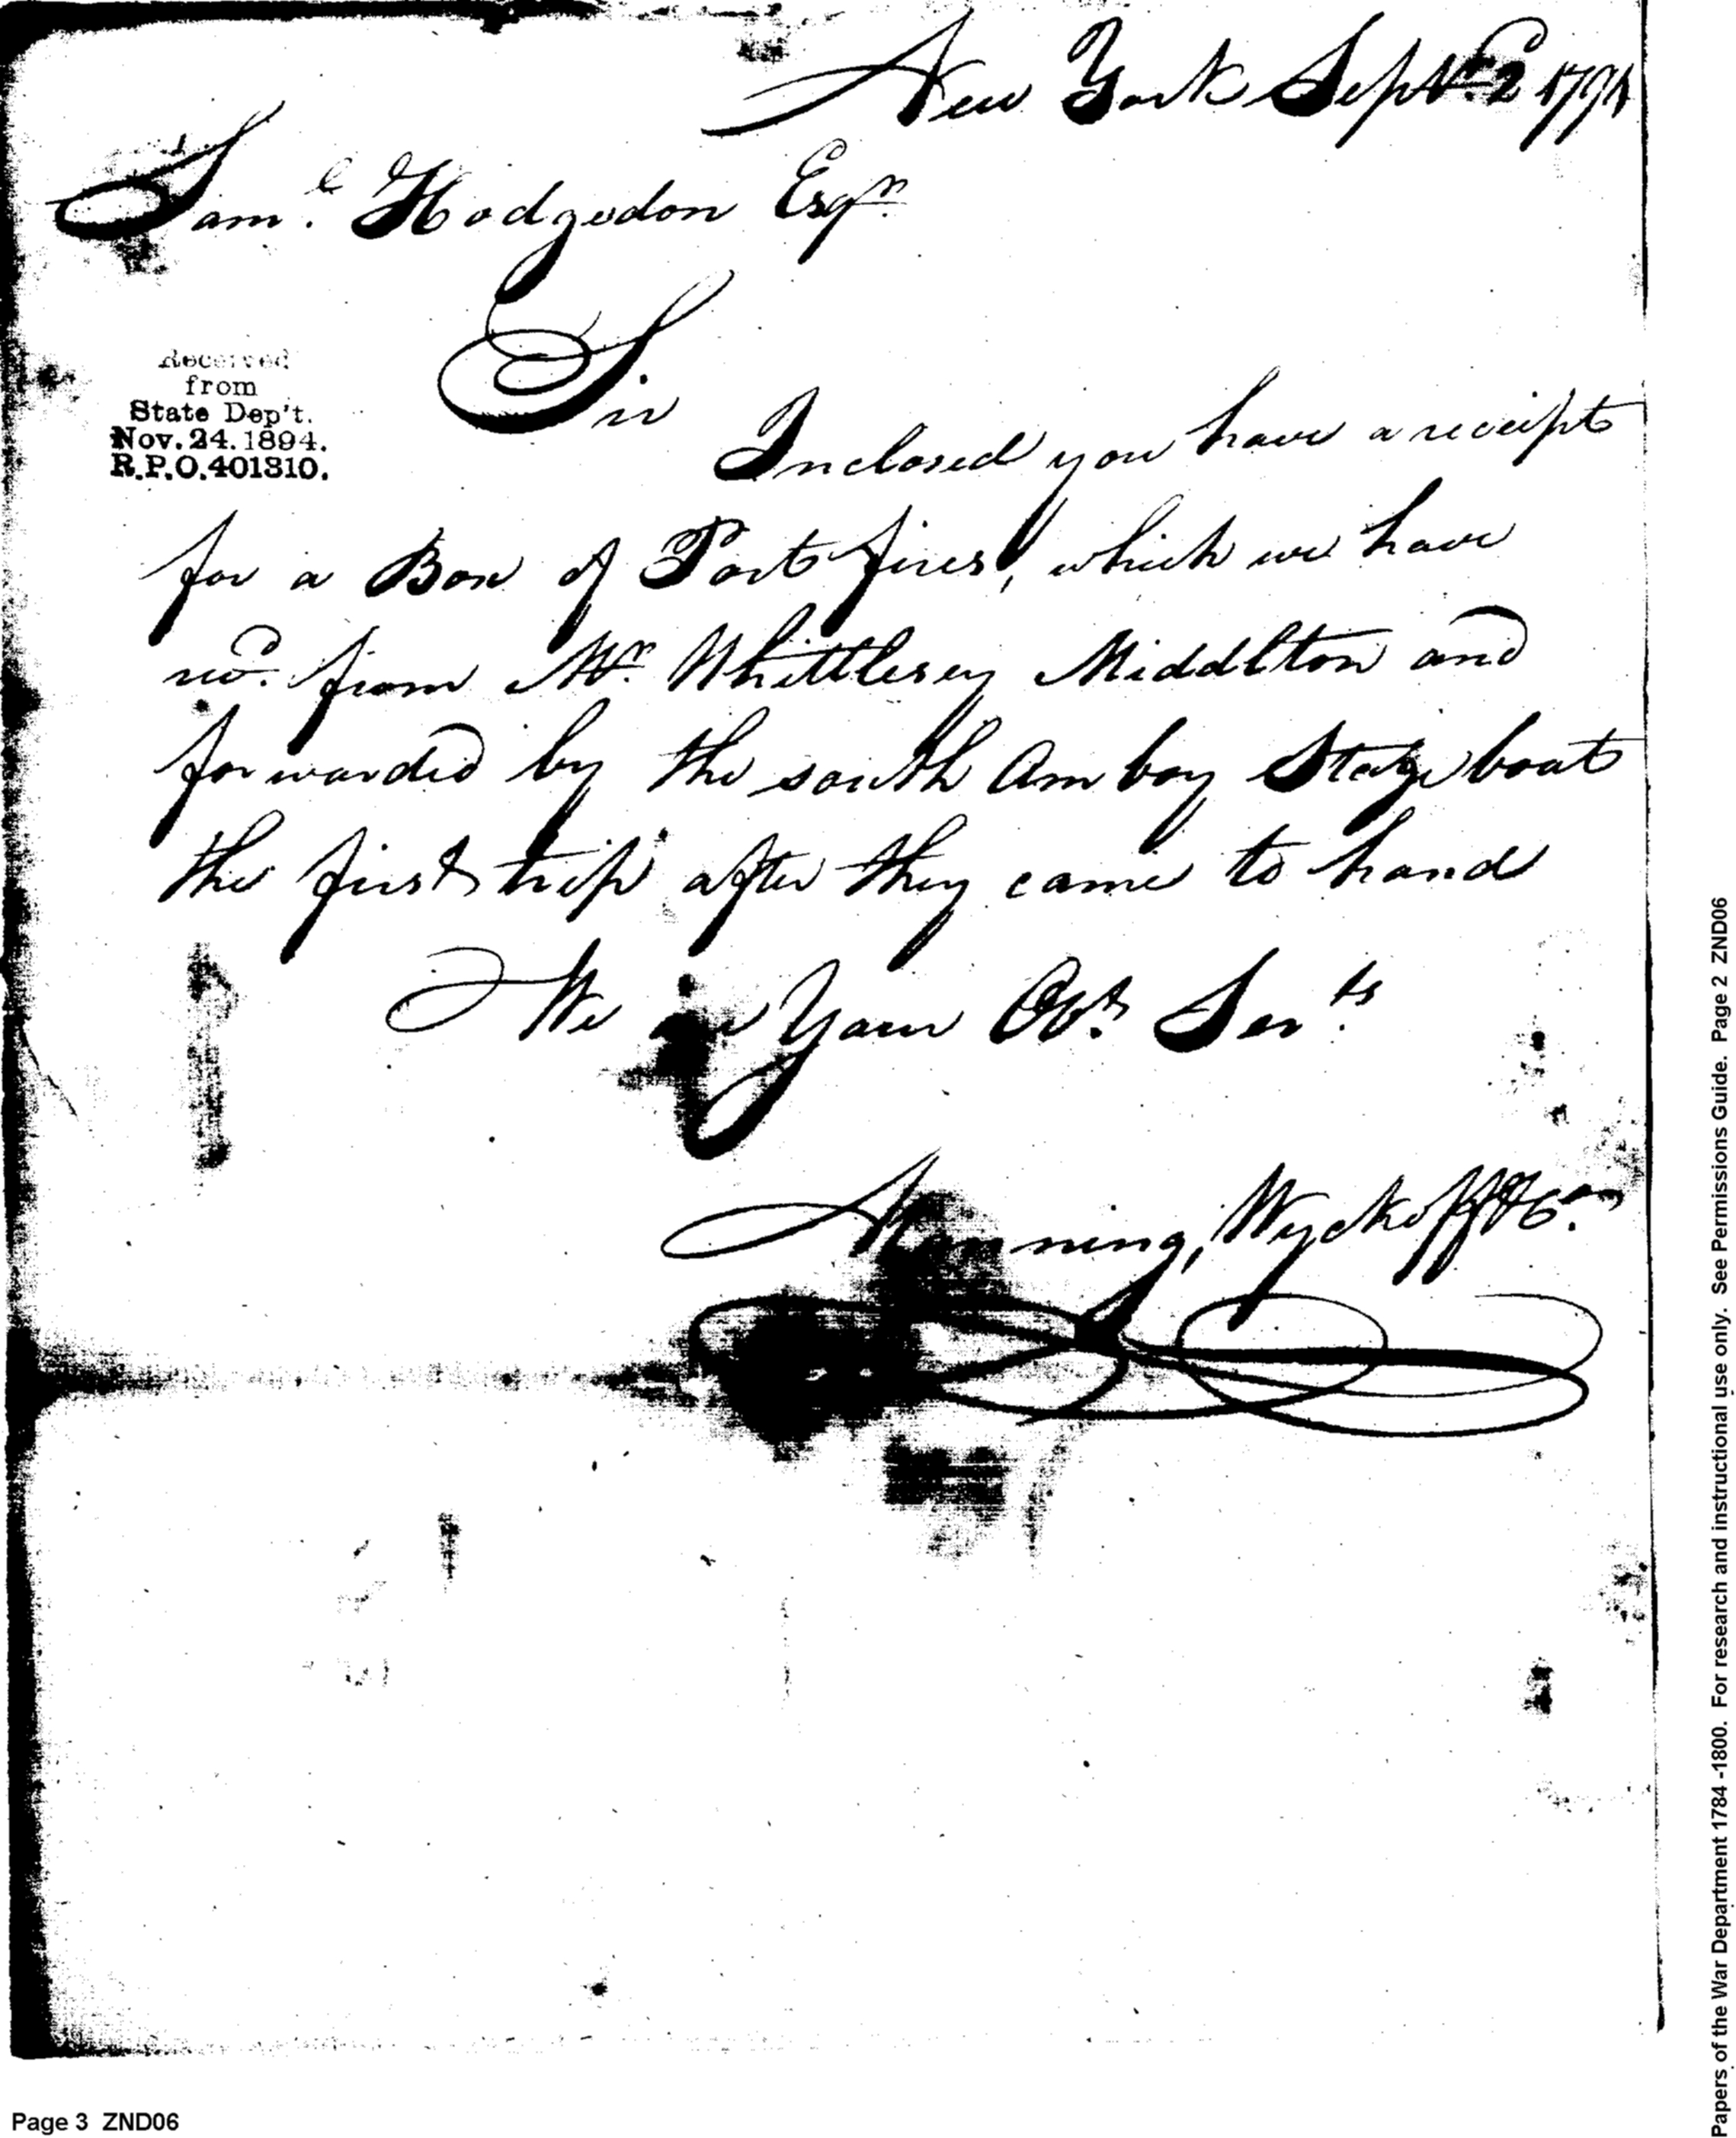 New York Sept.r 2d 1794
Sam.l Hodgsdon Esqr.
Sir
Inclosed you have a receipt
for a Box of Port fires, which we have
recd. from Mr. Whittlesey Middlton and
forwarded by the south Amboy Stage boat
the first trip after they came to hand
We are Your Obt. Ser.ts
Manning, Wyckoff & Co.
Received
from
State Dep't.
Nov. 24. 1894.
R.P.O. 401310.
Papers of the War Department 1784 -1800. For research and instructional use only. See Permissions Guide. Page 2 ZND06
Page 3 ZND06